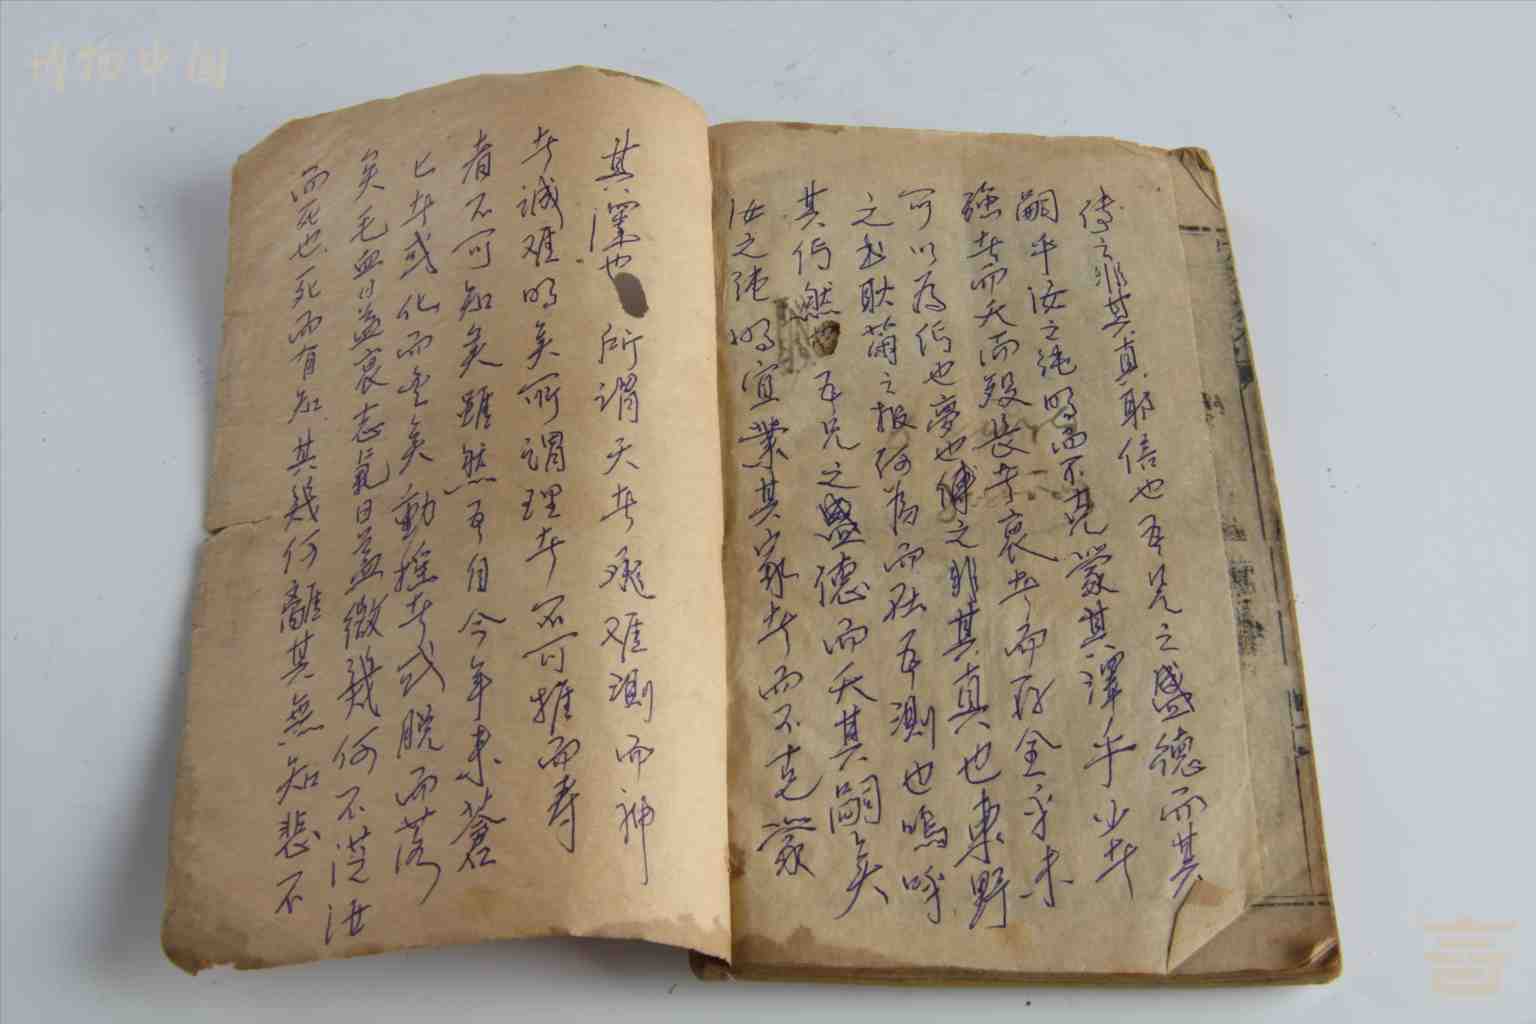 傳之非其真耶信也吾兄之盛德而其
嗣乎汝之純明而不克蒙其澤乎少者
強者而夭而殁長者衰者而存全乎未
可以为信也夢也傳之非其真也東野
之书耿蘭之报何為而在吾測也嗚呼
其信然也吾兄之盛德而夭其嗣矣
汝之純明宜業其家者而不克蒙
其澤也所謂天者诚难測而神
者诚难明矣所謂理者不可推而寿
者不可知矣雖然吾自今年来蒼
匕者或化而白矣動摇者或脱而落
矣毛血日益衰志氣日益微幾何不從汝
而死也死而有知其幾何離其無知悲不
博物中国